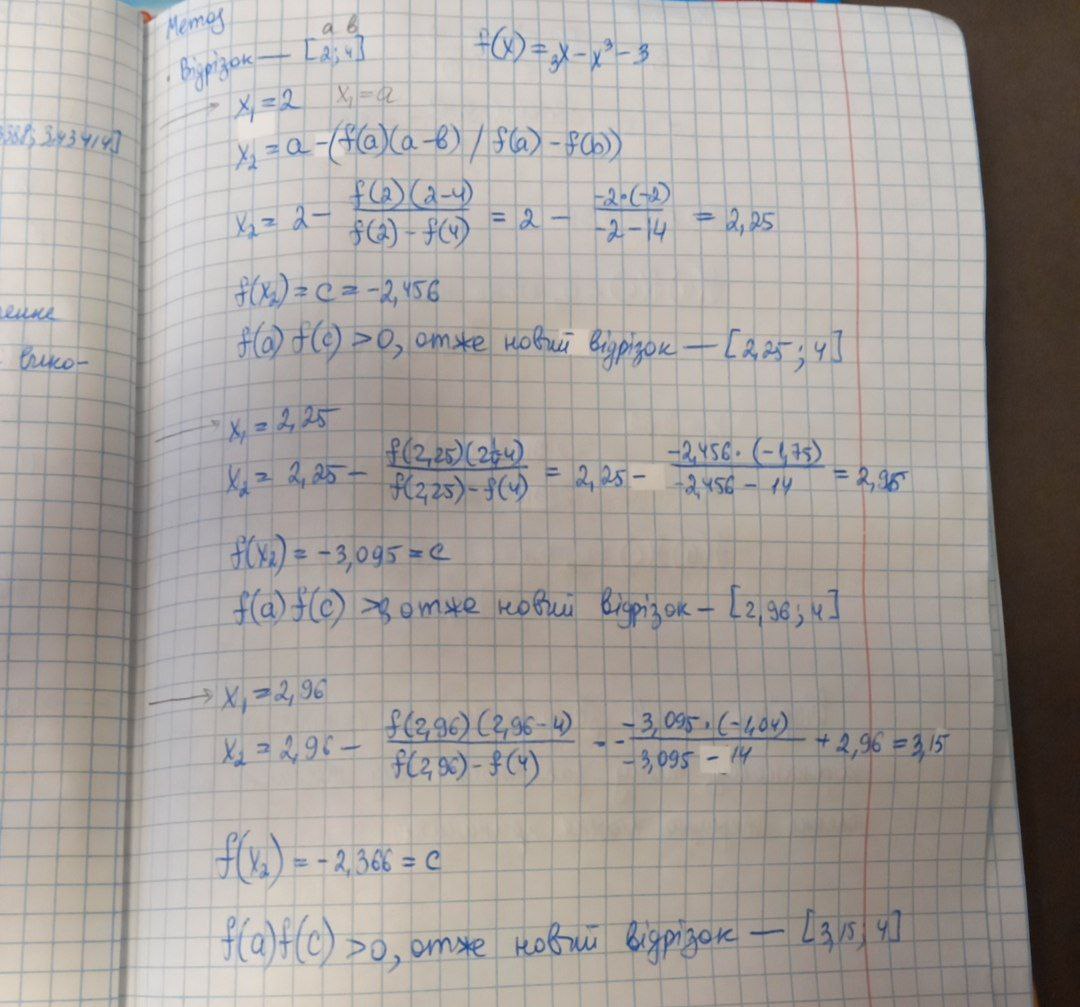 Метод
a в
Відрізок — [2; 4]
f(x) = 3x - x³ - 3
x₁ = 2 x₁ = a
x₂ = a - (f(a)(a-в) / f(a) - f(b))
x₂ = 2 - f(2)(2-4) / f(2) - f(4) = 2 - -2·(-2) / -2-14 = 2,25
f(x₂) = c = -2,456
f(a) f(c) > 0, отже новий відрізок — [2,25; 4]
x₁ = 2,25
x₂ = 2,25 - f(2,25)(2-4) / f(2,25) - f(4) = 2,25 - -2,456·(-1,75) / -2,456 - 14 = 2,95
f(x₂) = -3,095 = c
f(a) f(c) > отже новий відрізок — [2,96; 4]
x₁ = 2,96
x₂ = 2,96 - f(2,96)(2,96-4) / f(2,96) - f(4) = - -3,095·(-1,04) / -3,095 - 14 + 2,96 = 3,15
f(x₂) = -2,366 = c
f(a)f(c) > 0, отже новий відрізок — [3,15; 4]